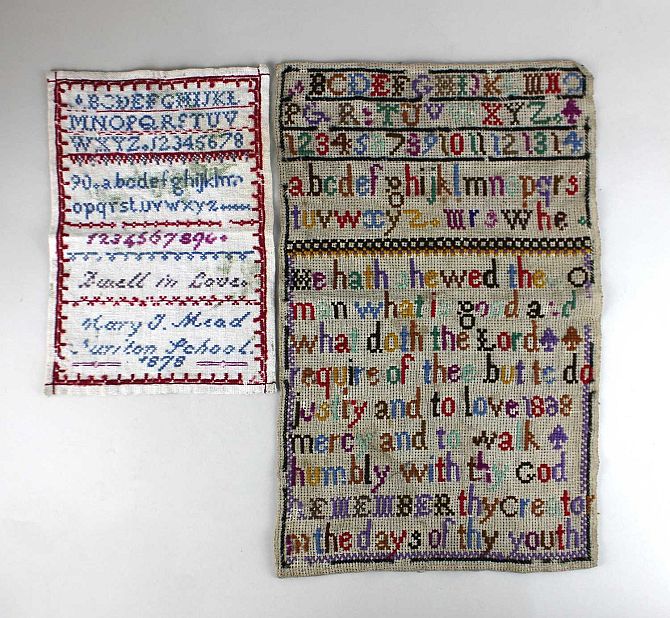 ABCDEFGHIJKL
MNOPQRSTUV
WXYZ.12345678
90.abcdefghijklm
opqrstuvwxyz
1234567890
Dwell in Love.
Mary J. Mead
School.
1878
BCDEFGHIJK MNO
PQ RSTUV XYZ
1234567891011121314
abcdefghijklmnopqrs
tuvwxyz mrs whe
He hath shewed thee O
man what is good and
what doth the Lord
require of thee but to do
justly and to love 1888
mercy and to walk
humbly with thy God
REMEMBER thy Creator
in the days of thy youth